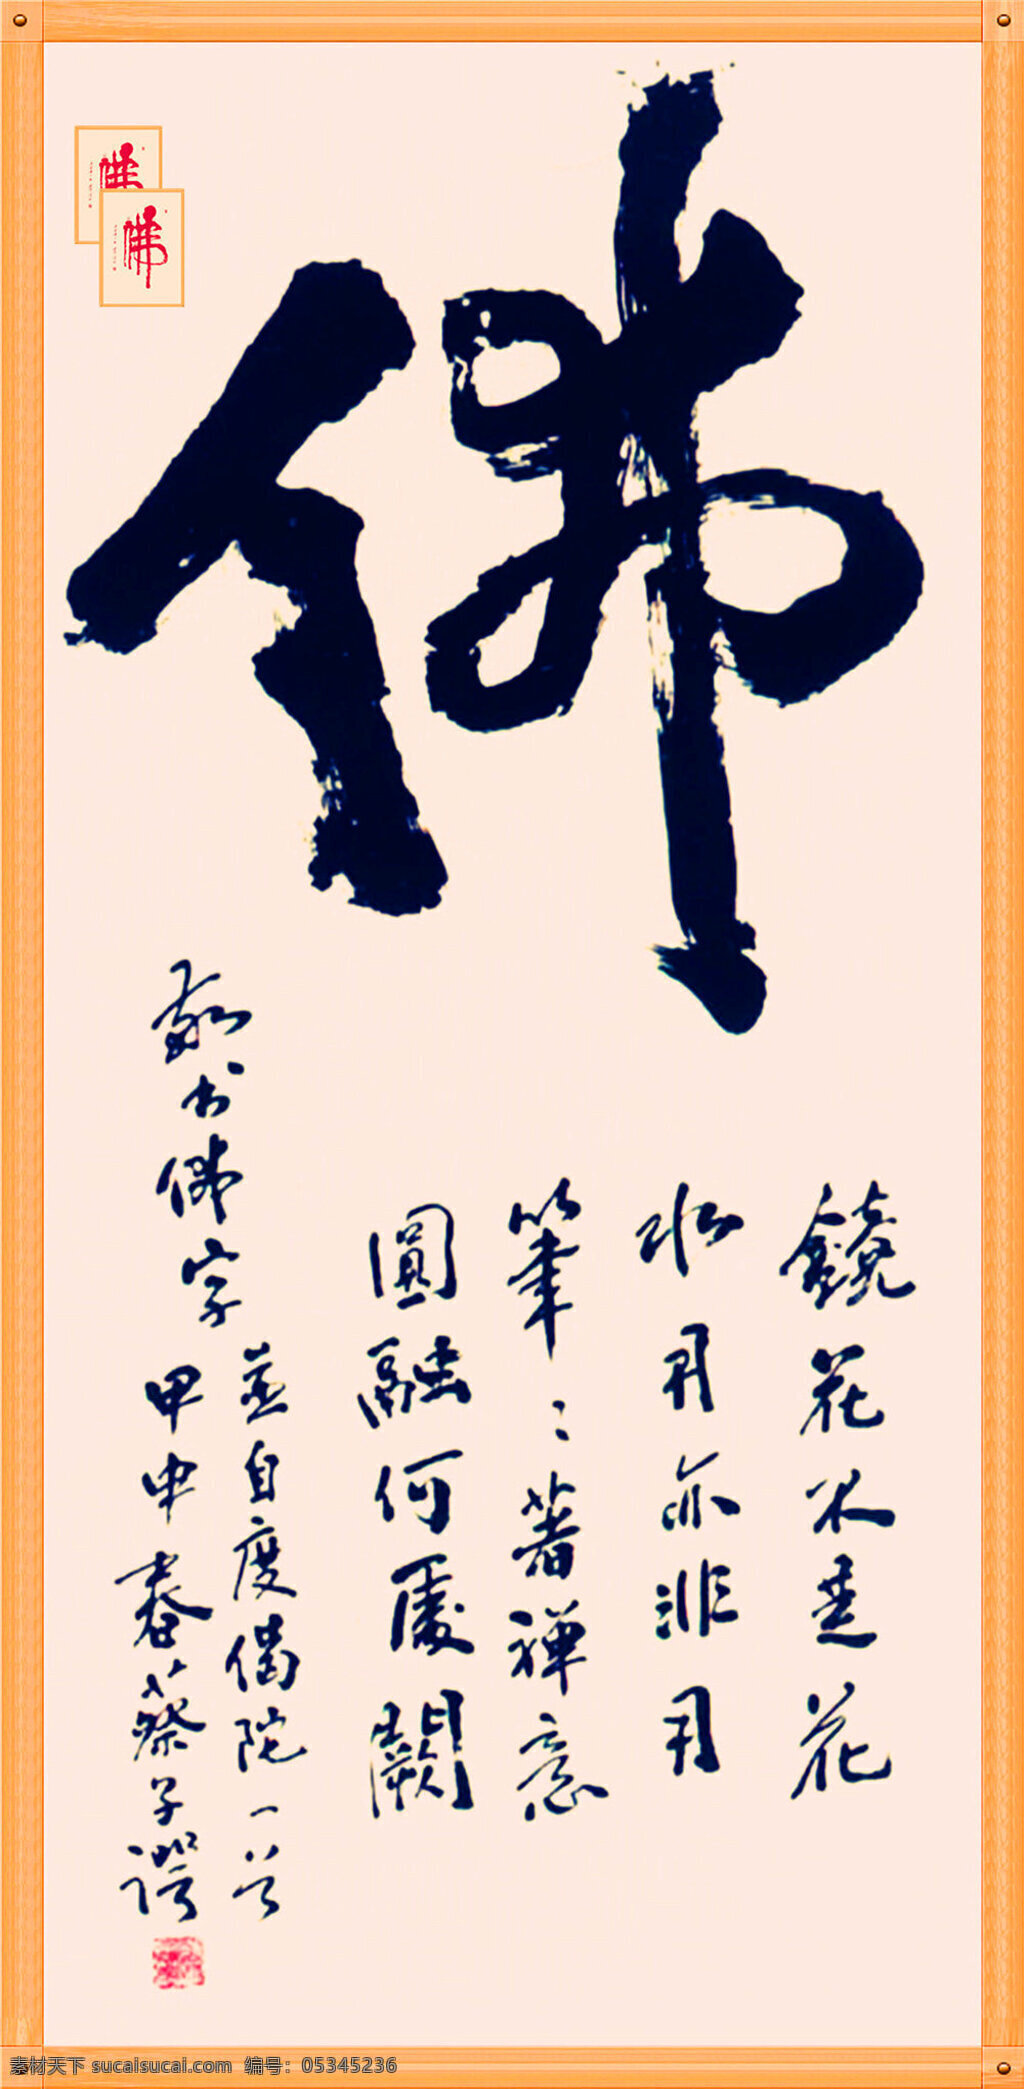 佛
佛
佛
鏡花不是花
水月亦非月
筆〻著禪意
圓融何處闕
敬书佛字
並自度偈陀一首
甲申春蔡子諤
素材天下 sucaisucai.com 编号：05345236